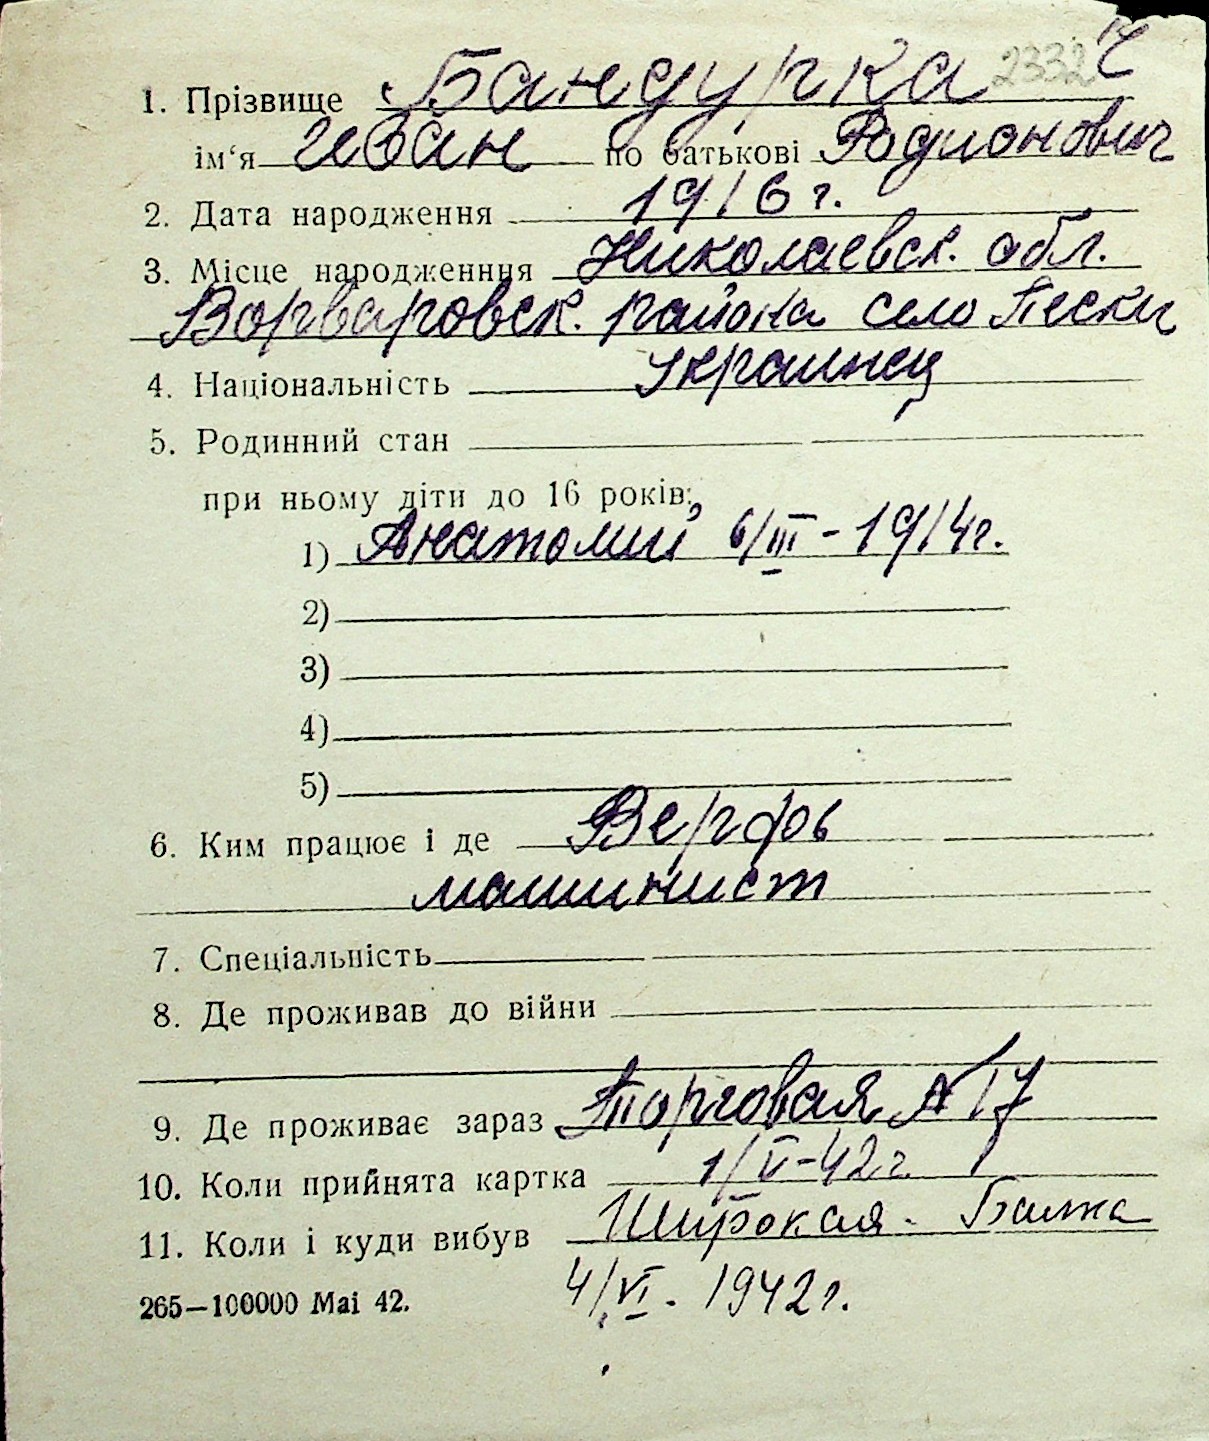 2332
1. Прізвище Бандурка
ім‘я Иван по батькові Родионович
2. Дата народження 1916 г.
3. Місце народженння Николаевск. обл.
Ворваровск. района село Пески
4. Національність Украинец
5. Родинний стан
при ньому діти до 16 років:
1) Анатолий 6/III - 1914г.
2)
3)
4)
5)
6. Ким працює і де Верфь
машинист
7. Спеціальність
8. Де проживав до війни
9. Де проживає зараз Торговая № 17
10. Коли прийнята картка 1/V-42 г.
11. Коли і куди вибув Широкая - Балка
265—100000 Mai 42. 4/VI - 1942г.